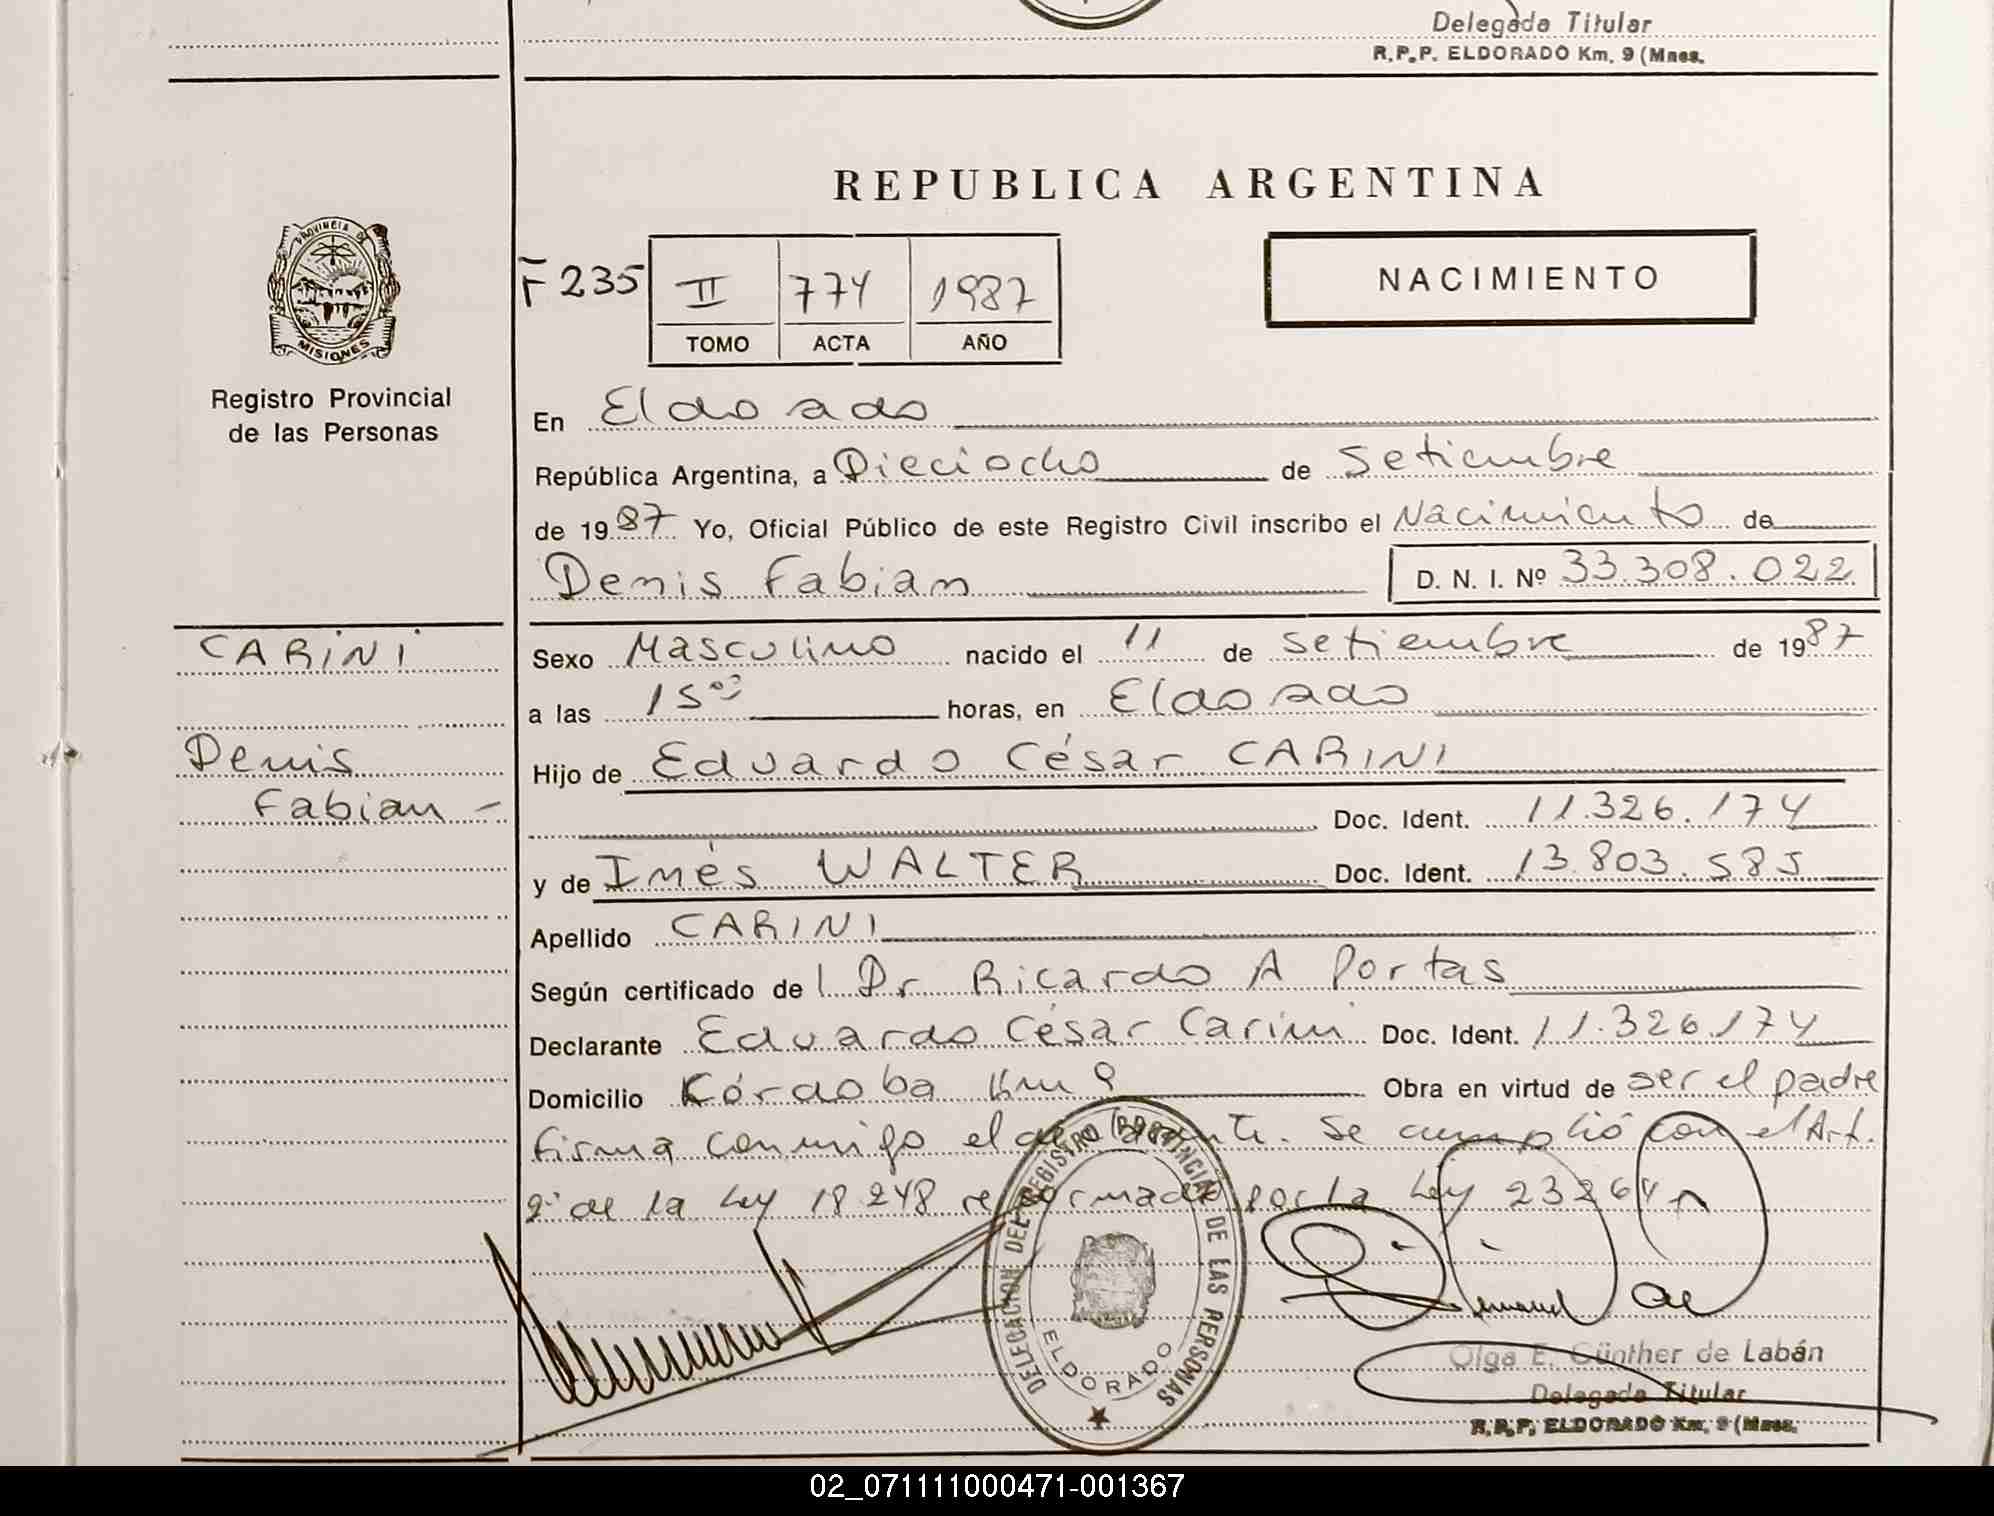 Delegada Titular
R.P.P. ELDORADO Km. 9 (Mnes.
REPUBLICA ARGENTINA
PROVINCIA DE
MISIONES
Registro Provincial
de las Personas
F 235
II 774 1987
TOMO ACTA AÑO
NACIMIENTO
En Eldorado
República Argentina, a Dieciocho de Setiembre
de 1987 Yo, Oficial Público de este Registro Civil inscribo el Nacimiento de
Denis Fabian D. N. I. Nº 33.308.022
CARINI
Denis
Fabian -
Sexo Masculino nacido el 11 de Setiembre de 1987
a las 15 horas, en Eldorado
Hijo de Eduardo César CARINI
Doc. Ident. 11.326.174
y de Inés WALTER Doc. Ident. 13.803.585
Apellido CARINI
Según certificado de l Dr Ricardo A Portas
Declarante Eduardo César Carini Doc. Ident. 11.326.174
Domicilio Córdoba Km 9 Obra en virtud de ser el padre
firma conmigo el declarante. Se cumplió con el Art.
2° de la Ley 18.248 reformada por la Ley 23264
DELEGACION DEL REGISTRO PROVINCIAL DE LAS PERSONAS
ELDORADO
Olga E. Günther de Labán
Delegada Titular
R.P.P. ELDORADO Km. 9 (Mnes.
02_071111000471-001367